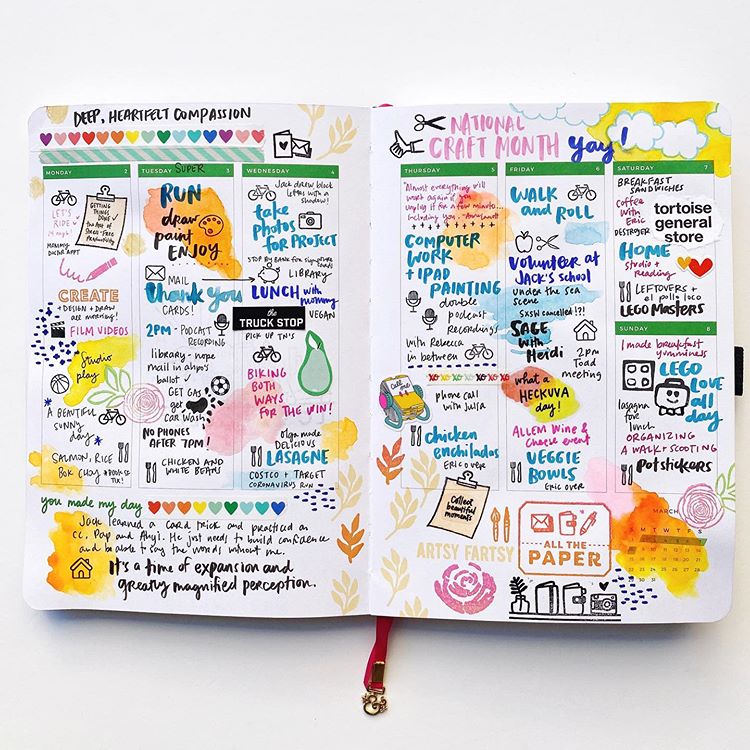 DEEP, HEARTFELT COMPASSION
MONDAY 2
LET'S
RIDE
GETTING
THINGS
DONE
the Art of
Stress-Free
Productivity
MOMMY
DOCTOR APPT
CREATE
+ DESIGN + DRAW
ALL MORNING!
FILM VIDEOS
Studio
play
A BEUTIFUL
SUNNY
DAY
SALMON, RICE
BOK CHOY
TUESDAY 3
SUPER
RUN
draw
paint
ENJOY
MAIL
Thank You
CARDS!
2PM - PODCAST
RECORDING
library - nope
mail in
ballot
GET GAS
get
Car Wash
NO PHONES
AFTER 7PM!
CHICKEN AND
WHITE BEANS
WEDNESDAY 4
Jack drew block
letters with a
shadow!
take
PHOTOS
FOR PROJECT
STOP BY BANK for signature
LIBRARY
LUNCH with
mommy
VEGAN
the
TRUCK STOP
PICK UP TN'S
BIKING
BOTH
WAYS
FOR THE WIN!
olga made
DELICIOUS
LASAGNE
COSTCO + TARGET
CORONAVIRUS RUN
you made my day
Jack learned a card trick and practiced on
cc, Pap and Ahyi. He just needs to build confidence
and be able to say the words without me.
It's a time of expansion and
greatly magnified perception.
NATIONAL
CRAFT MONTH yay!
THURSDAY 5
Almost everything will
work again if you
unplug it for a few minutes...
including you. - Anne Lamott
COMPUTER
WORK
+ IPAD
PAINTING
double
podcast
Recordings
with Rebecca
in between
XO XO XO XO XO XO XO
Call me
phone call
with Julia
chicken
enchiladas
ERIC OVER
FRIDAY 6
WALK
and ROLL
Volunteer AT
JACK'S SCHOOL
UNDER THE SEA
SCENE
SXSW cancelled!?!
SAGE
with
Heidi
2pm
Todd
meeting
what a
HECKUVA
day!
ALLEM Wine &
Cheese event
VEGGIE
BOWLS
ERIC OVER
SATURDAY 7
BREAKFAST
SANDWICHES
Coffee
with Eric
DESTROYER
tortoise
general
store
HOME
studio +
Reading
LEFTOVERS +
el pollo loco
LEGO MASTERS
SUNDAY 8
I made breakfast
yumminess
LEGO
LOVE
all
DAY
lasagna
for
lunch
ORGANIZING
A WALK + SCOOTING
Potstickers
Collect
beautiful
moments
ARTSY FARTSY
ALL THE
PAPER
MARCH
S M T W T F S
1 2 3 4 5 6 7
8 9 10 11 12 13 14
15 16 17 18 19 20 21
22 23 24 25 26 27 28
29 30 31